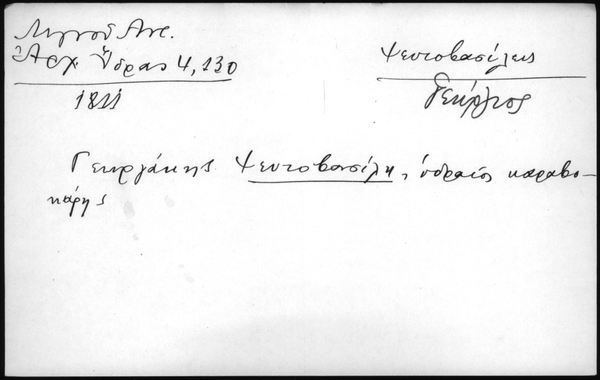 Λιγνού Αντ.
Ἀρχ. Ὕδρας 4, 130
1811
Ψευτοβασίλης
Γεώργιος
Γεωργάκης Ψευτοβασίλη, ὑδραῖος καραβο-
κύρης